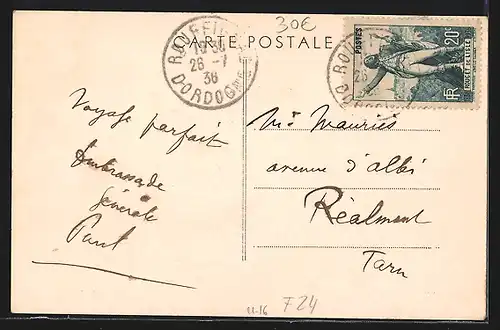 30€
CARTE POSTALE
26 -7
36
DORDOGNE
POSTES
20c
ROUGET DE LISLE
RF
Voyage parfait
Embrassade
Générale
Paul
Mis Mauriès
avenue d'Albi
Réalmont
Tarn
11-16 F24